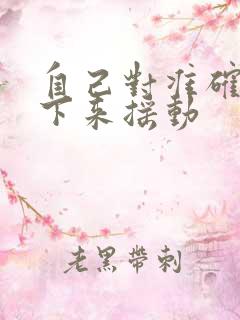 自己對准確
下来摇動
老黑帶刺